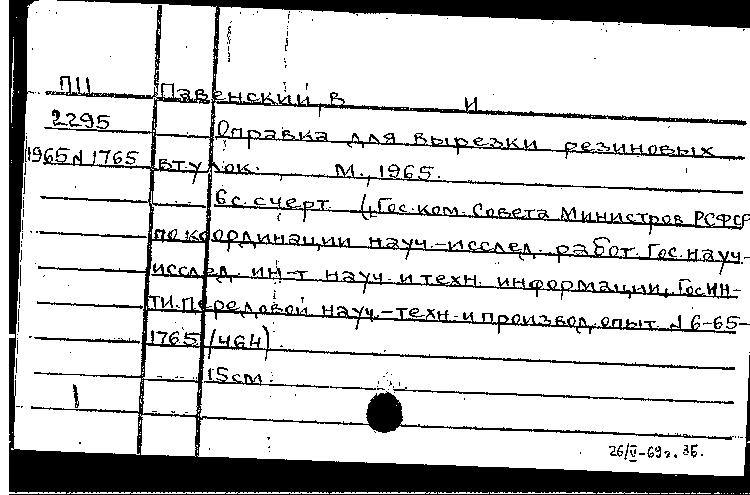 ПII Павенский, В И
2295 Оправка для вырезки резиновых
1965 N 1765 втулок. М., 1965.
6 с. с черт. (Гос. ком. Совета Министров РСФСР
по координации науч.-исслед. работ. Гос. науч.-
исслед. ин-т науч. и техн. информации, ГосИН-
ТИ. Передовой науч.-техн. и производ. опыт N 6-65-
1765/464)
15 см.
1
26/V-69 г. ЗБ.